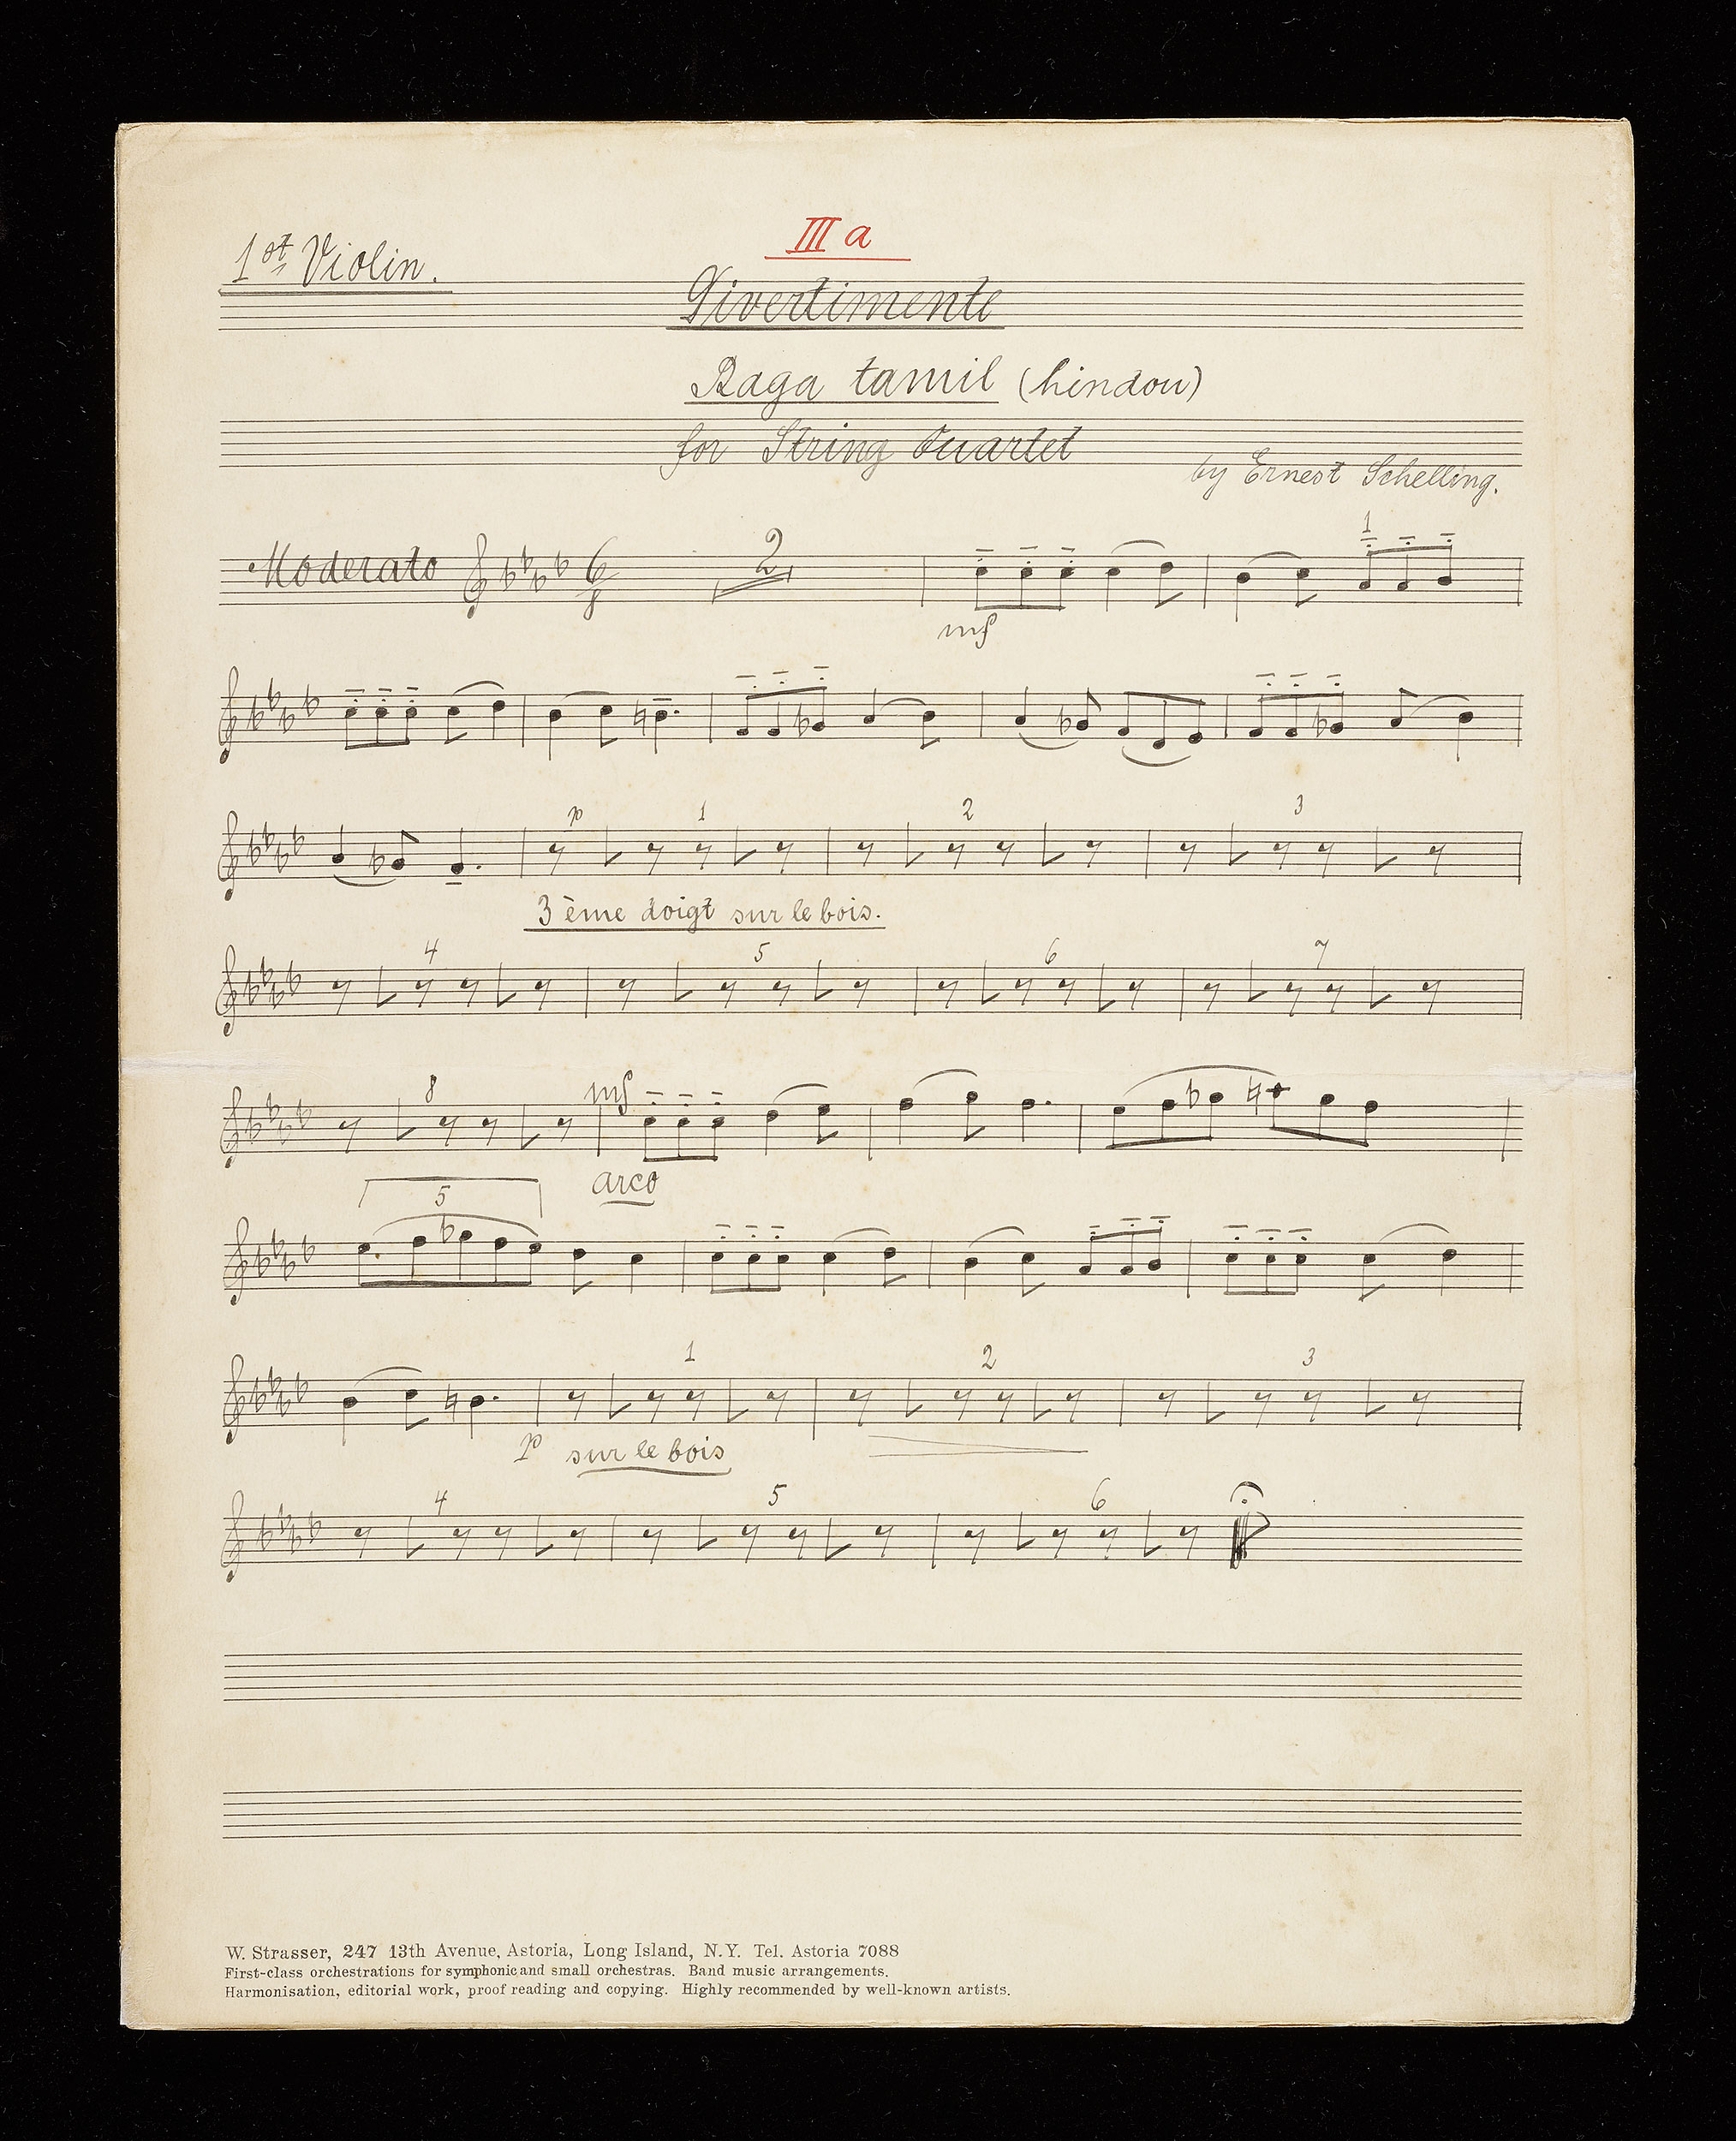 III a
1st Violin.
Divertimento
Raga tamil (hindou)
for String Quartet
by Ernest Schelling.
1
Moderato 6/8 2
mf
p 1 2 3
3ème doigt sur le bois.
4 5 6 7
8 mf
arco
5
1 2 3
p sur le bois
4 5 6
W. Strasser, 247 13th Avenue, Astoria, Long Island, N.Y. Tel. Astoria 7088
First-class orchestrations for symphonic and small orchestras. Band music arrangements.
Harmonisation, editorial work, proof reading and copying. Highly recommended by well-known artists.